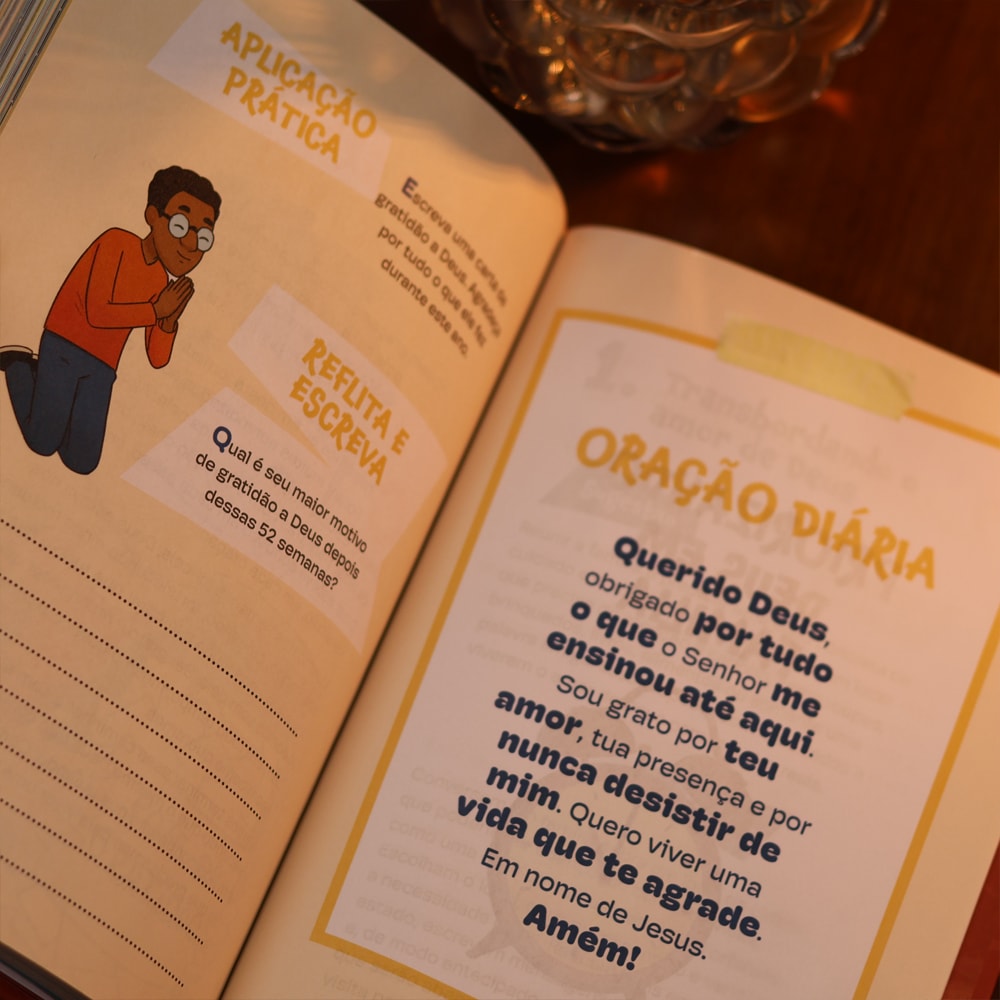 APLICAÇÃO
PRÁTICA
Escreva uma carta de
gratidão a Deus. Agradeça
por tudo o que ele fez
durante este ano.
REFLITA E
ESCREVA
Qual é seu maior motivo
de gratidão a Deus depois
dessas 52 semanas?
ORAÇÃO DIÁRIA
Querido Deus,
obrigado por tudo
o que o Senhor me
ensinou até aqui.
Sou grato por teu
amor, tua presença e por
nunca desistir de
mim. Quero viver uma
vida que te agrade.
Em nome de Jesus.
Amém!